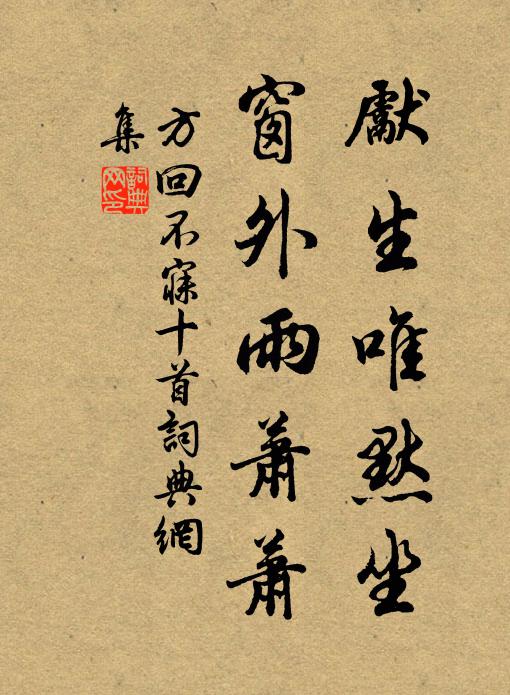 獻生唯默坐
窗外雨蕭蕭
方回不寐十首詞典網
集
詞典網印